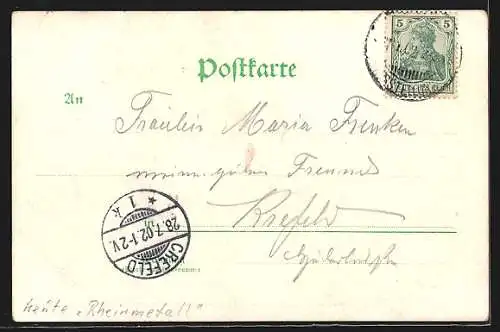 5 5
Postkarte
An
Fräulein Maria Frenken
meine guten Freund
Krefeld
CREFELD
28.7.02.1-2V.
* 1 k
heute "Rheinmetall"